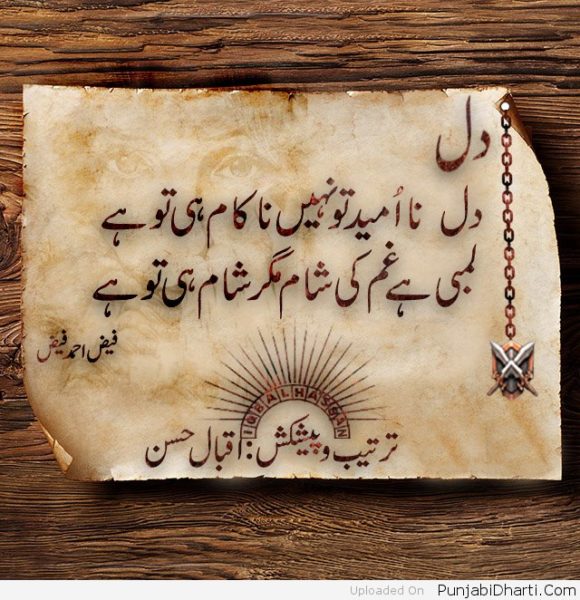 دل
دل نا اُمید تو نہیں ناکام ہی تو ہے
لمبی ہے غم کی شام مگر شام ہی تو ہے
فیض احمد فیض
IQBAL HASSAN
ترتیب و پیشکش: اقبال حسن
Uploaded On PunjabiDharti.Com